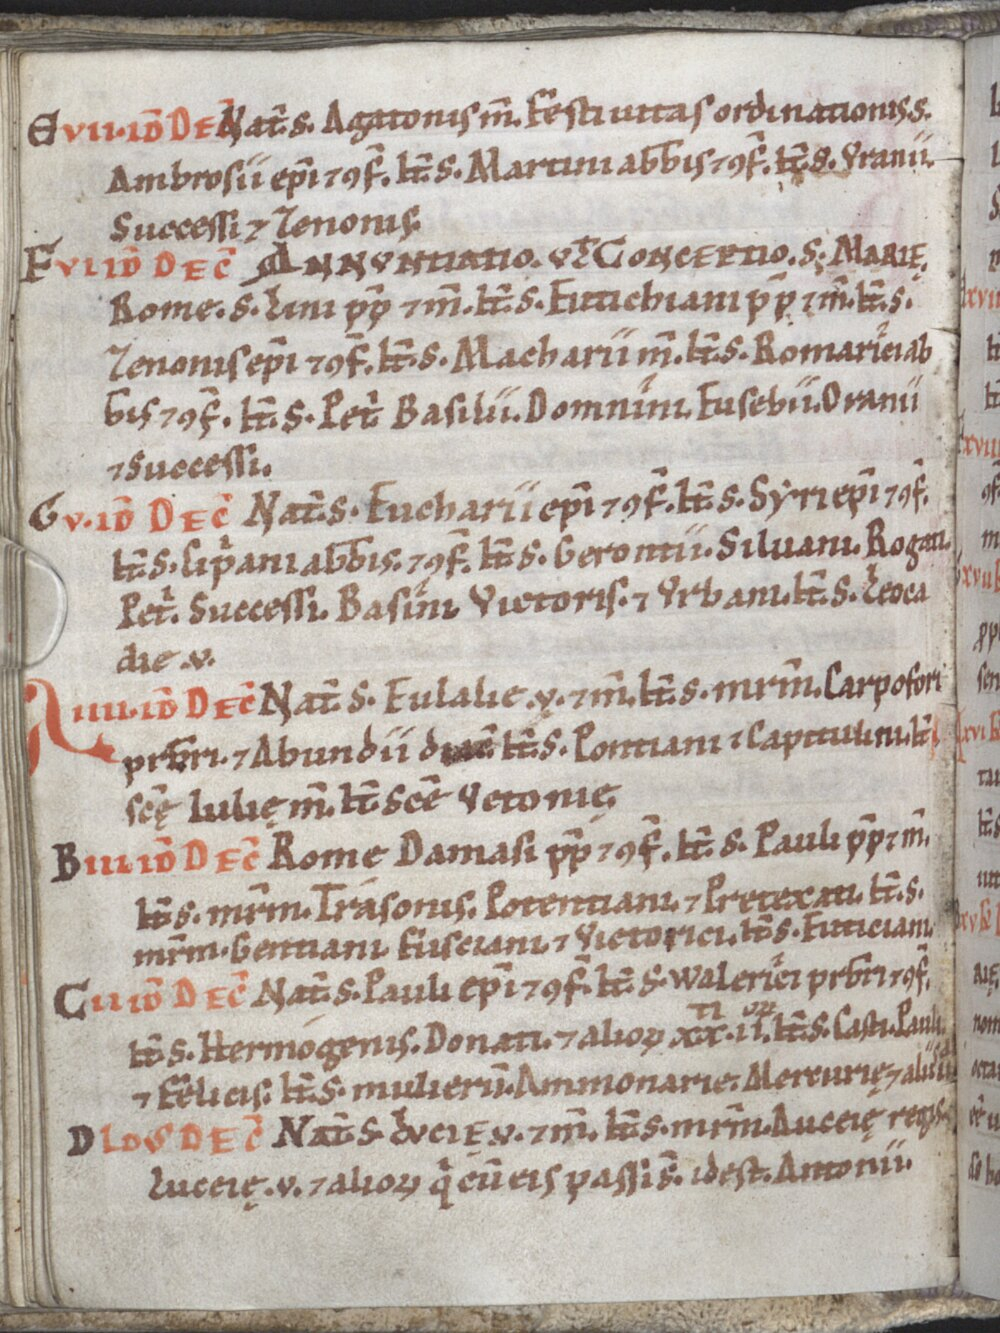 E VII. ID DEC Nat̄. s. Agatonis m̄. Festiuitas ordinationis s.
Ambrosii ep̄i ⁊ ꝯf. It̄. s. Martini abb̄is ⁊ ꝯf. It̄. s. Vranii.
Successi ⁊ Zenonis.
F VI ID DEC̄ ANNVNTIATIO. VT̄ CONCEPTIO. S. MARIĘ.
Rome. s. Lini pp̄ ⁊ m̄. It̄. s. Eutichiani pp̄ ⁊ m̄. It̄. s.
Zenonis ep̄i ⁊ ꝯf. It̄. s. Macharii m̄. It̄. s. Romarici ab
b̄is ⁊ ꝯf. It̄. s. Pet̄. Basilii. Domnini. Eusebii. Oranii
⁊ Successi.
G V. ID DEC̄ Nat̄. s. Eucharii ep̄i ⁊ ꝯf. It̄. s. Syri ep̄i ⁊ ꝯf.
It̄. s. Cip̄ani abb̄is. ⁊ ꝯf. It̄. s. Gerontii. Siluani. Rogati.
Pet̄. Successi. Basini Victoris. ⁊ Vrbani. It̄. s. Leoca
die .v.
A IIII. ID DEC̄ Nat̄. s. Eulalie .v. ⁊ m̄. It̄. s. mr̄m. Carpofori
prb̄ri. ⁊ Abundii It̄. s. Pontiani ⁊ Capitulini. It̄
sc̄ę Iulię m̄. It̄. sc̄ę Vetonię.
B III ID DEC̄ Rome Damasi pp̄ ⁊ ꝯf. It̄. s. Pauli pp̄ ⁊ m̄.
It̄. s. mr̄m. Trasonis. Potentiani ⁊ Pretextati. It̄. s.
mr̄m. Gentiani Fusciani ⁊ Victorici. It̄. s. Euticiani
C II ID DEC̄ Nat̄. s. Pauli ep̄i ⁊ ꝯf. It̄. s. Walerici prb̄ri ⁊ ꝯf.
It̄. s. Hermogenis. Donati. ⁊ alioꝝ XX. II. It̄. s. Casti. Pauli
⁊ Felicis. It̄. s. mulierū. Ammonarie. Mercurię ⁊
D IDVS DEC̄ Nat̄. s. LVCIĘ v. ⁊ m̄. It̄. s. mr̄m. Auceię regis.
Luceię. v. ⁊ alioꝝ q̄ cū eis passi s̄. idest. Antonii.